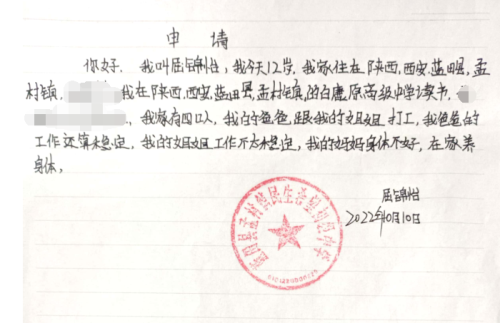 申请
你好，我叫屈锦怡，我今天12岁，我家住在陕西，西安，蓝田县，孟
村镇，我在陕西，西安，蓝田县，孟村镇，的白鹿原高级中学读书，
我家有四口人，我的爸爸，跟我的姐姐打工，我爸爸的
工作还算稳定，我的姐姐工作不太稳定，我的妈妈身体不好，在家养
身体，
屈锦怡
2022年10月10日